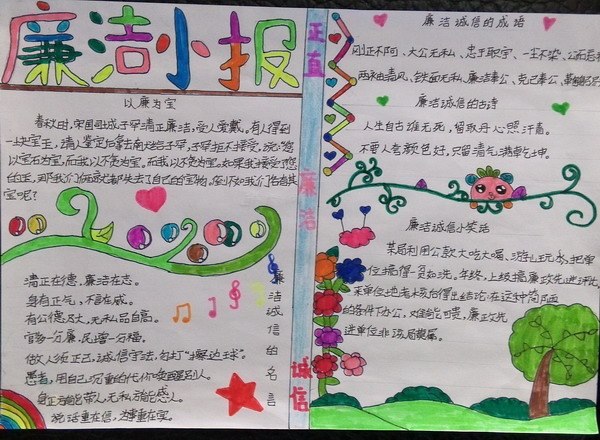 廉洁小报
以廉为宝
春秋时，宋国司城子罕清正廉洁，受人爱戴。有人得到
一块宝玉，请人鉴定后拿去献给子罕，子罕拒不接受，说：“您
以宝石为宝，而我以不贪为宝。而我以不贪为宝。如果我接受了您
的玉，那我们俩就都失去了自己的宝物。倒不如我们各有其
宝呢？”
清正在德，廉洁在志。
身有正气，不言自威。
有公德乃大，无私品自高。
官多一分廉，民增一分福。
做人须正己，诚信守法，勿打“擦边球”。
愚者，用自己沉重的代价唤醒别人。
身正方能带人，无私方能感人。
说话重在信，达事重在实。
廉洁诚信的名言
正直
廉洁
诚信
廉洁诚信的成语
刚正不阿、大公无私、忠于职守、一尘不染、公而忘私
两袖清风、铁面无私、廉洁奉公、克己奉公、
廉洁诚信的古诗
人生自古谁无死，留取丹心照汗青。
不要人夸颜色好，只留清气满乾坤。
廉洁诚信小笑话
某局利用公款大吃大喝、游山玩水，把单
位搞得一贫如洗。年终，上级搞廉政先进评比，
某单位考核后得出结论：在这种简陋
的条件下办公，难能可贵，廉政先
进单位非该局莫属。